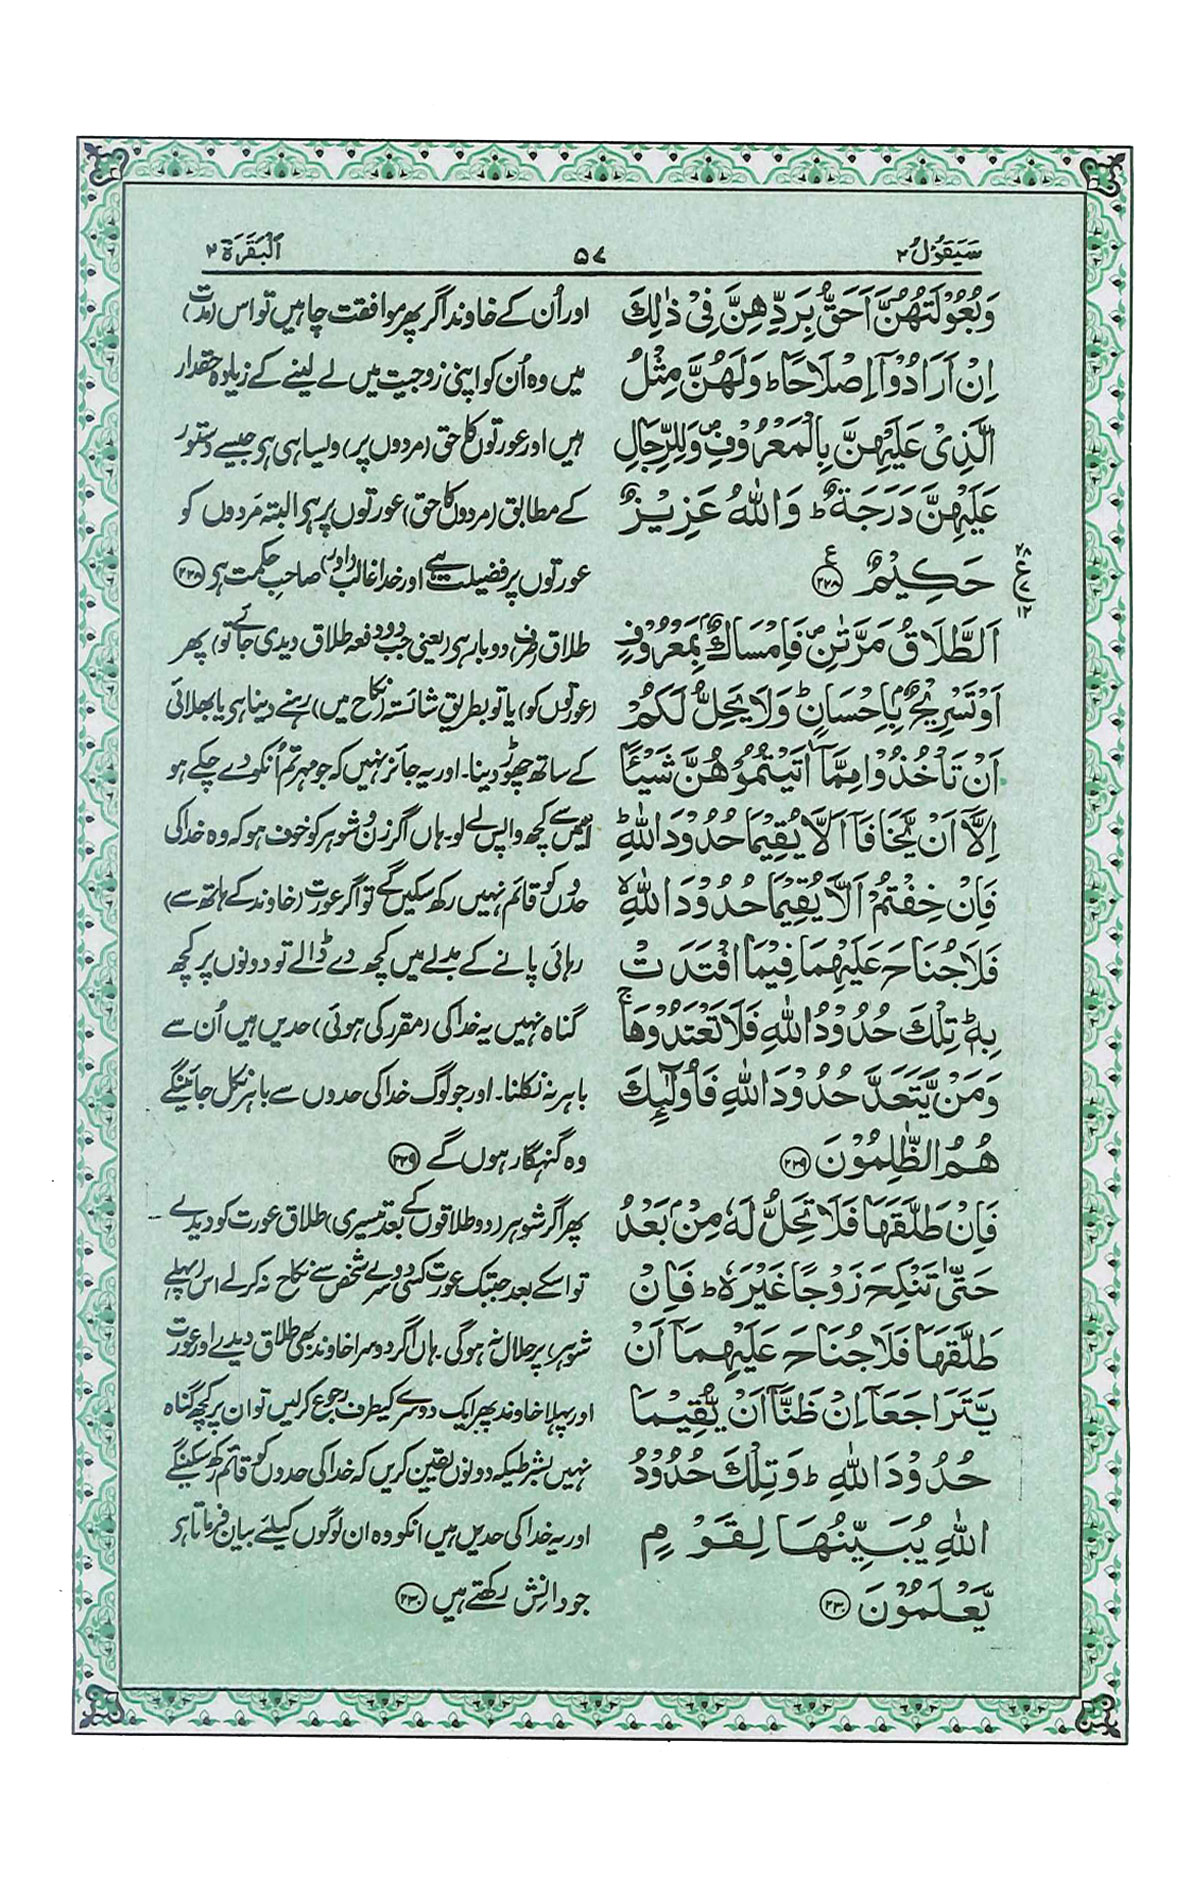 سَيَقُوْلُ ۲
۵۷
اَلْبَقَرَة ۲
وَبُعُوْلَتُهُنَّ اَحَقُّ بِرَدِّهِنَّ فِیْ ذٰلِكَ
اِنْ اَرَادُوْٓا اِصْلَاحًا ؕ وَلَهُنَّ مِثْلُ
الَّذِیْ عَلَيْهِنَّ بِالْمَعْرُوْفِ ۪ وَلِلرِّجَالِ
عَلَيْهِنَّ دَرَجَةٌ ؕ وَاللّٰهُ عَزِيْزٌ
حَكِيْمٌ ۲۲۸ ع
اَلطَّلَاقُ مَرَّتٰنِ ۪ فَاِمْسَاكٌۢ بِمَعْرُوْفٍ
اَوْ تَسْرِيْحٌۢ بِاِحْسَانٍ ؕ وَلَا يَحِلُّ لَكُمْ
اَنْ تَاْخُذُوْا مِمَّآ اٰتَيْتُمُوْهُنَّ شَيْـًٔا
اِلَّآ اَنْ يَّخَافَآ اَلَّا يُقِيْمَا حُدُوْدَ اللّٰهِ ؕ
فَاِنْ خِفْتُمْ اَلَّا يُقِيْمَا حُدُوْدَ اللّٰهِ ۙ
فَلَا جُنَاحَ عَلَيْهِمَا فِيْمَا افْتَدَتْ
بِهٖ ؕ تِلْكَ حُدُوْدُ اللّٰهِ فَلَا تَعْتَدُوْهَا ۚ
وَمَنْ يَّتَعَدَّ حُدُوْدَ اللّٰهِ فَاُولٰٓئِكَ
هُمُ الظّٰلِمُوْنَ ۲۲۹
فَاِنْ طَلَّقَهَا فَلَا تَحِلُّ لَهٗ مِنْۢ بَعْدُ
حَتّٰى تَنْكِحَ زَوْجًا غَيْرَهٗ ؕ فَاِنْ
طَلَّقَهَا فَلَا جُنَاحَ عَلَيْهِمَآ اَنْ
يَّتَرَاجَعَآ اِنْ ظَنَّآ اَنْ يُّقِيْمَا
حُدُوْدَ اللّٰهِ ؕ وَتِلْكَ حُدُوْدُ
اللّٰهِ يُبَيِّنُهَا لِقَوْمٍ
يَّعْلَمُوْنَ ۲۳۰
اور اُن کے خاوند اگر پھر موافقت چاہیں تو اس (مدت)
میں وہ اُن کو اپنی زوجیت میں لے لینے کے زیادہ حقدار
ہیں اور عورتوں کا حق (مردوں پر) ویسا ہی ہے جیسے دستور
کے مطابق (مردوں کا حق) عورتوں پر ہے البتہ مَردوں کو
عورتوں پر فضیلت ہے اور خدا غالب (اور) صاحبِ حکمت ہے ۲۲۸
طلاق (صرف) دو بار ہے (یعنی جب دو دفعہ طلاق دیدی جائے تو) پھر
(عورتوں کو) یا تو بطریق شائستہ (نکاح میں) رہنے دینا ہے یا بھلائی
کے ساتھ چھوڑ دینا۔ اور یہ جائز نہیں کہ جو مہر تم اُنکو دے چکے ہو
اسمیں سے کچھ واپس لے لو۔ ہاں اگر زن و شوہر کو خوف ہو کہ وہ خدا کی
حدوں کو قائم نہیں رکھ سکیں گے تو اگر عورت (خاوند کے ہاتھ سے)
رہائی پانے کے بدلے میں کچھ دے ڈالے تو دونوں پر کچھ
گناہ نہیں یہ خدا کی (مقرر کی ہوئی) حدیں ہیں اُن سے
باہر نہ نکلنا۔ اور جو لوگ خدا کی حدوں سے باہر نکل جائینگے
وہ گنہگار ہوں گے ۲۲۹
پھر اگر شوہر (دو طلاقوں کے بعد تیسری) طلاق عورت کو دیدے
تو اسکے بعد جبتک عورت کسی دوسرے شخص سے نکاح نہ کرلے اس (پہلے
شوہر) پر حلال نہ ہوگی۔ ہاں اگر دوسرا خاوند بھی طلاق دیدے اور عورت
اور پہلا خاوند پھر ایک دوسرے کیطرف رجوع کرلیں تو ان پر کچھ گناہ
نہیں بشرطیکہ دونوں یقین کریں کہ خدا کی حدوں کو قائم رکھ سکینگے
اور یہ خدا کی حدیں ہیں انکو وہ ان لوگوں کیلئے بیان فرماتا ہے
جو دانش رکھتے ہیں ۲۳۰
۲۸
ع
۷
۱۲